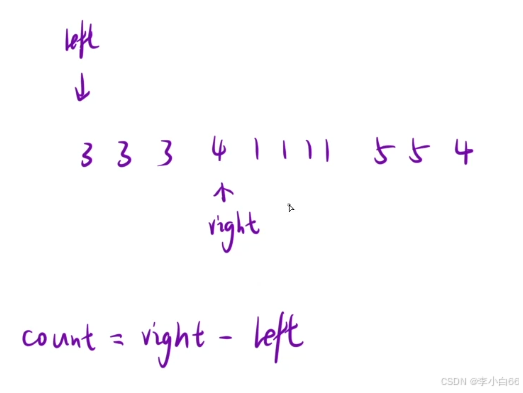 left
3 3 3 4 1 1 1 1 5 5 4
right
count = right - left
CSDN @李小白66